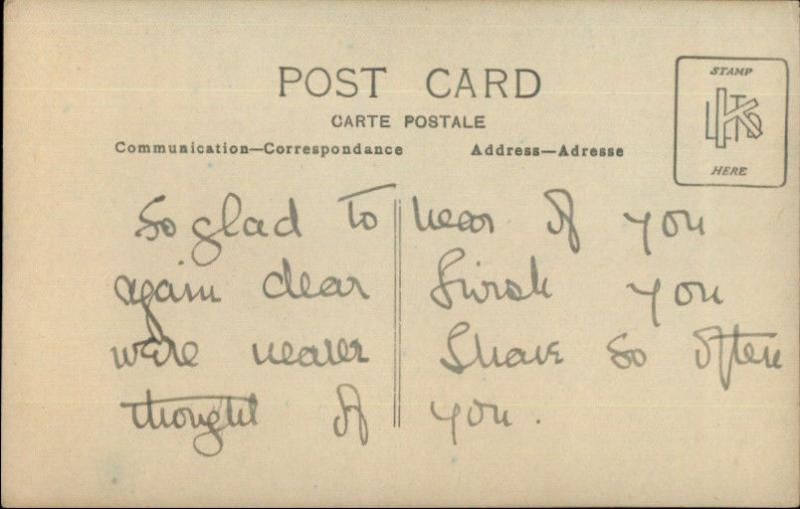 POST CARD
CARTE POSTALE
Communication—Correspondance Address—Adresse
STAMP
HERE
So glad to hear of you
again dear I wish you
were nearer I have so often
thought of you.